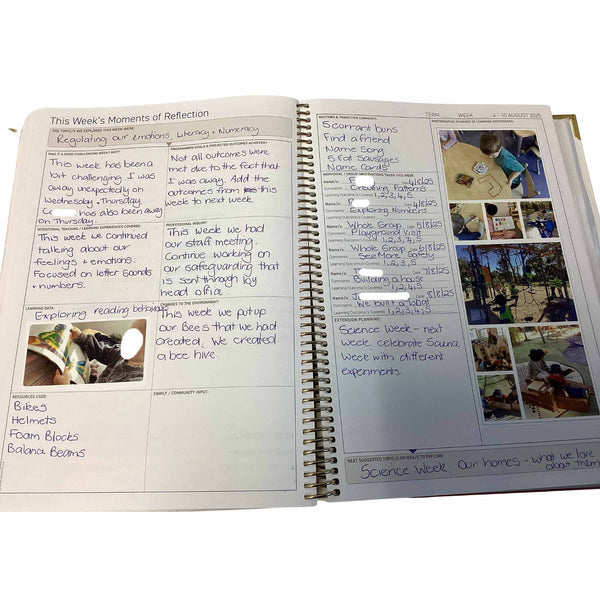 This Week's Moments of Reflection
THE TOPIC/S WE EXPLORED THIS WEEK WERE:
Regulating our emotions, Literacy + Numeracy
WAS IT A GOOD/CHALLENGING WEEK? WHY?
This week has been a
bit challenging I was
away unexpectedly on
Wednesday + Thursday.
has also been away
on Thursday.
PROGRAMMED GOALS & PROJECTED OUTCOMES ACHIEVED?
Not all outcomes were
met due to the fact that
I was away. Add the
outcomes from this
week to next week.
INTENTIONAL TEACHING / LEARNING EXPERIENCES COVERED:
This week we continued
talking about our
feelings + emotions.
Focused on letter sounds
+ numbers.
PROFESSIONAL INQUIRY:
This week we had
our staff meeting.
Continue working on
our safeguarding that
is sent through by
head office.
LEARNING DATA:
Exploring reading behaviours
CHANGES TO THE ENVIRONMENT:
This week we put up
our Bees that we had
created. We created
a bee hive.
RESOURCES USED:
Bikes
Helmets
Foam Blocks
Balance Beams
FAMILY / COMMUNITY INPUT:
ROUTINES & TRANSITION COMMENTS:
5 corrant buns
Find a friend
Name Song
5 Fat Sausages
Name Cards
INDIVIDUAL / GROUP OBSERVATIONS TAKEN THIS WEEK:
Name/s: 4/8/25
Comments: Creating Patterns
Learning Outcome/s Covered: 1, 2, 3, 4, 5
Name/s: 4/8/25
Comments: Exploring Numbers
Name/s: Whole Group 5/8/25
Comments: Playground Visit
Learning Outcome/s Covered: 1, 2, 3, 4, 5
Name/s: Whole Group 6/8/25
Comments: See More Safety
Learning Outcome/s Covered: 1, 2, 3, 5
Name/s: J Date: 7/8/25
Comments: Building a house
Learning Outcome/s Covered: 1, 2, 4, 5
Name/s: 8/8/25
Comments: We built a robot
Learning Outcome/s Covered: 1, 2, 4, 5
EXTENSION PLANNING:
Science Week - next
week celebrate Science
Week with different
experiments.
TERM WEEK 4 - 10 AUGUST 2025
PHOTOGRAPHIC EVIDENCE OF LEARNING EXPERIENCES:
NEXT SUGGESTED TOPIC/S OR IDEA/S TO EXPLORE:
Science Week, Our homes - what we love
about them